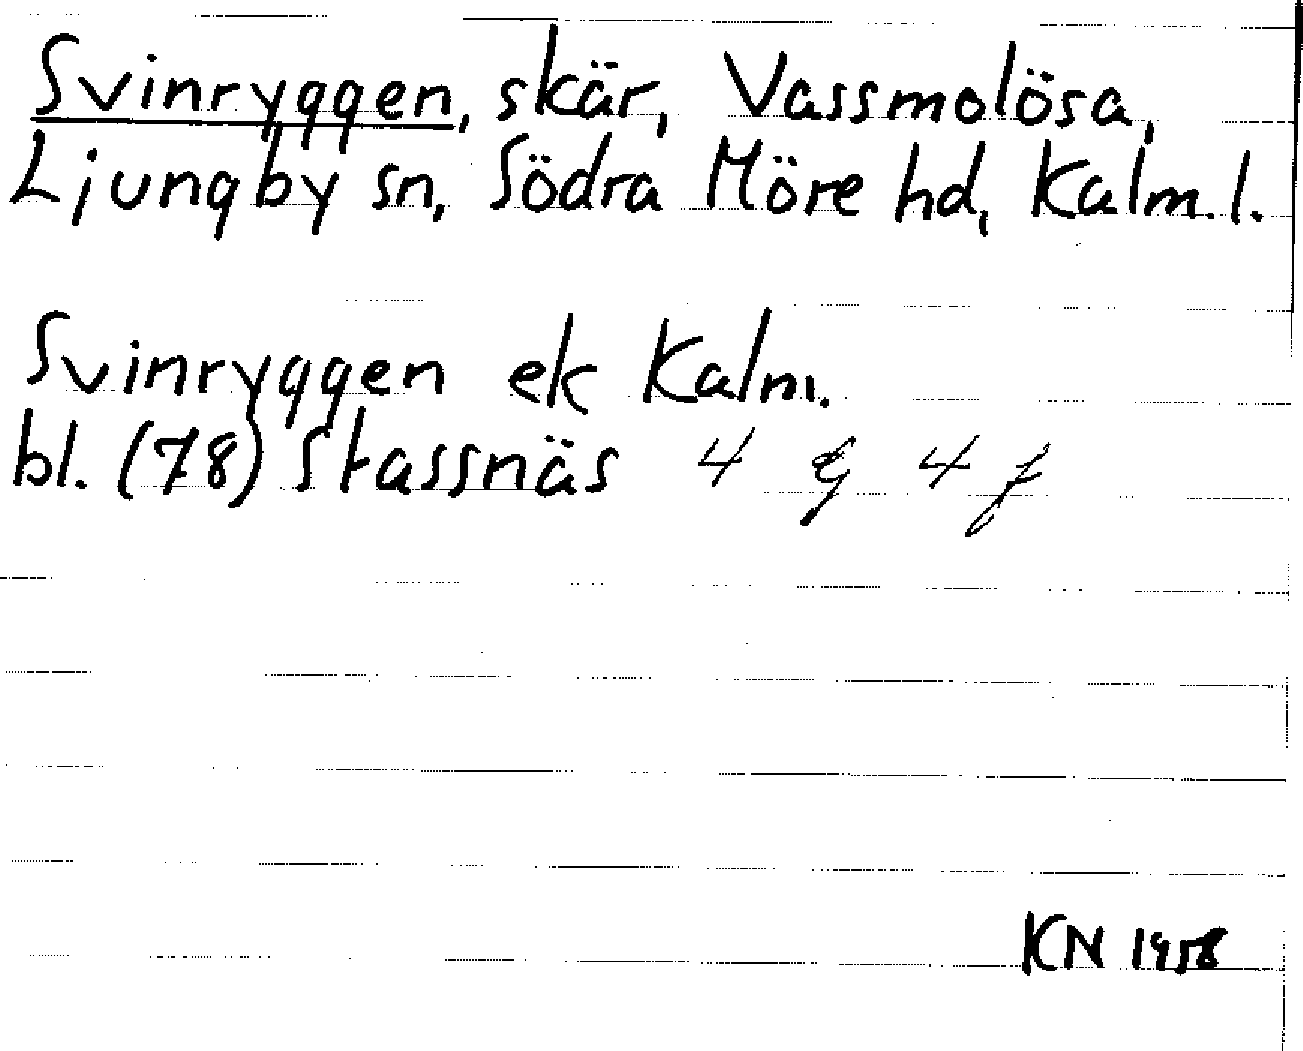 Svinryggen, skär, Vassmolösa,
Ljungby sn, Södra Möre hd, Kalm. l.
Svinryggen ek Kalm.
bl. (78) Stassnäs 4 g 4 f
KN 1958